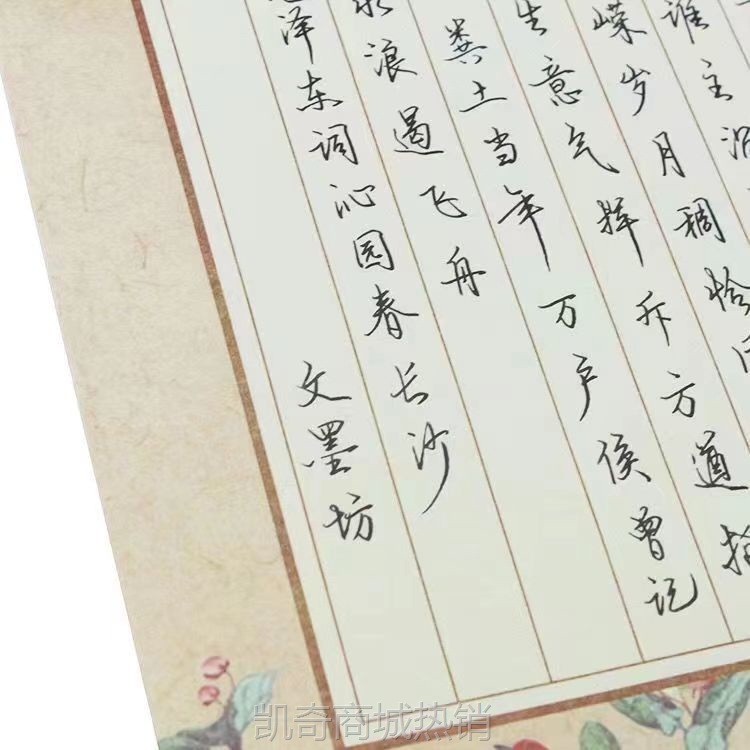 谁主沉
嵘岁月稠恰同
生意气挥斥方遒指
粪土当年万户侯曾记
水浪遏飞舟
泽东词沁园春长沙
文墨坊
凯奇商城热销